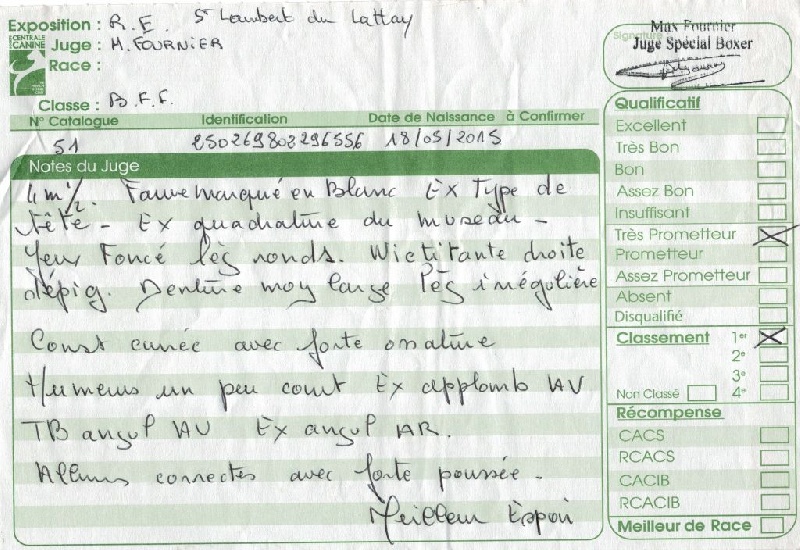 Exposition : R.E. St Lambert du Lattay
CENTRALE CANINE
Juge : M. FOURNIER
Race :
Classe : B.F.F.
Signature
Max Fournier
Juge Spécial Boxer
N° Catalogue Identification Date de Naissance à Confirmer
51 250269802296556 18/05/2015
Notes du Juge
4 m 1/2. Fauve marqué en Blanc Ex Type de
tête - Ex quadrature du museau -
Yeux Foncé lég ronds. Nictitante droite
dépig. Denture moy large lég irrégulière
Const carrée avec forte ossature
Humerus un peu court Ex applomb AV
TB angul AV Ex angul AR.
Allures correctes avec forte poussée -
Meilleur Espoir
Qualificatif
Excellent
Très Bon
Bon
Assez Bon
Insuffisant
Très Prometteur
Prometteur
Assez Prometteur
Absent
Disqualifié
Classement 1er
2e
3e
Non Classé 4e
Récompense
CACS
RCACS
CACIB
RCACIB
Meilleur de Race